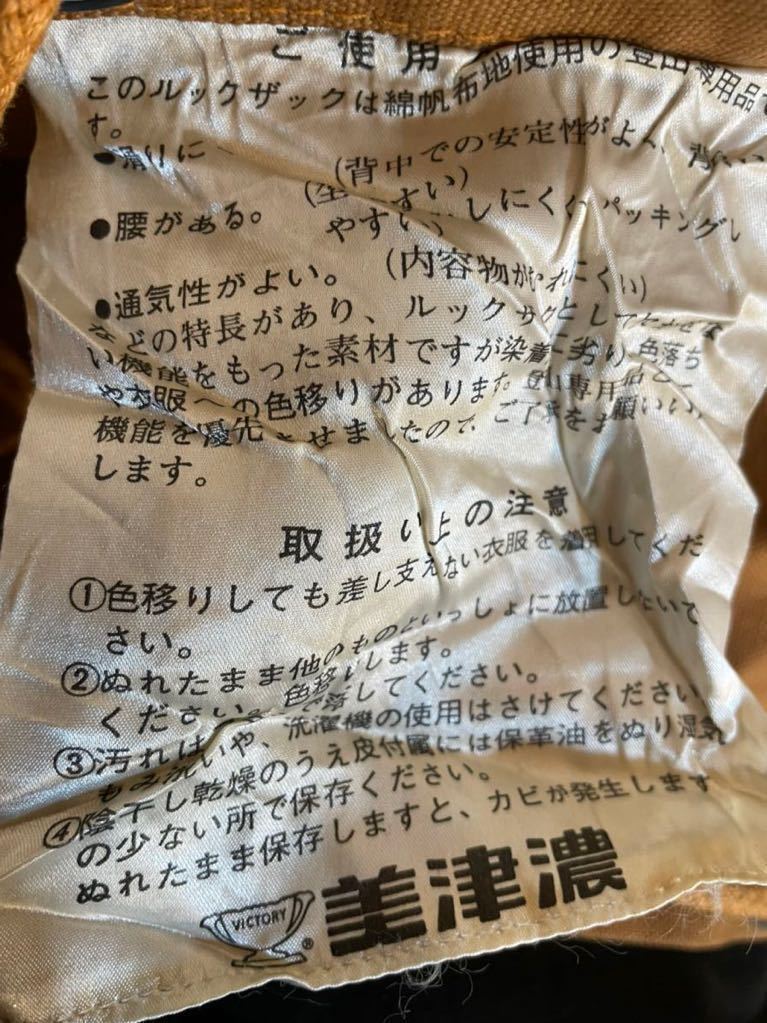 ご使用
このルックザックは綿帆布地使用の登山専用品で
す。
●滑りに (背中での安定性がよく、背
すい)
●腰がある。 しにくくパッキングし
やすい
●通気性がよい。 (内容物がむれにくい)
などの特長があり、ルックザックとして
い機能をもった素材ですが染着に劣り、色落ち
や衣服への色移りがあります。登山専用品として
機能を優先させましたので、ご了承をお願いい
します。
取扱い上の注意
①色移りしても差し支えない衣服を着用してくだ
さい。
②ぬれたまま他のものといっしょに放置しないで
ください。色移りします。
③汚れは で落してください。
もみ洗いや、洗濯機の使用はさけてください
④陰干し乾燥のうえ皮付属には保革油をぬり湿気
の少ない所で保存ください。
ぬれたまま保存しますと、カビが発生します
VICTORY ® 美津濃